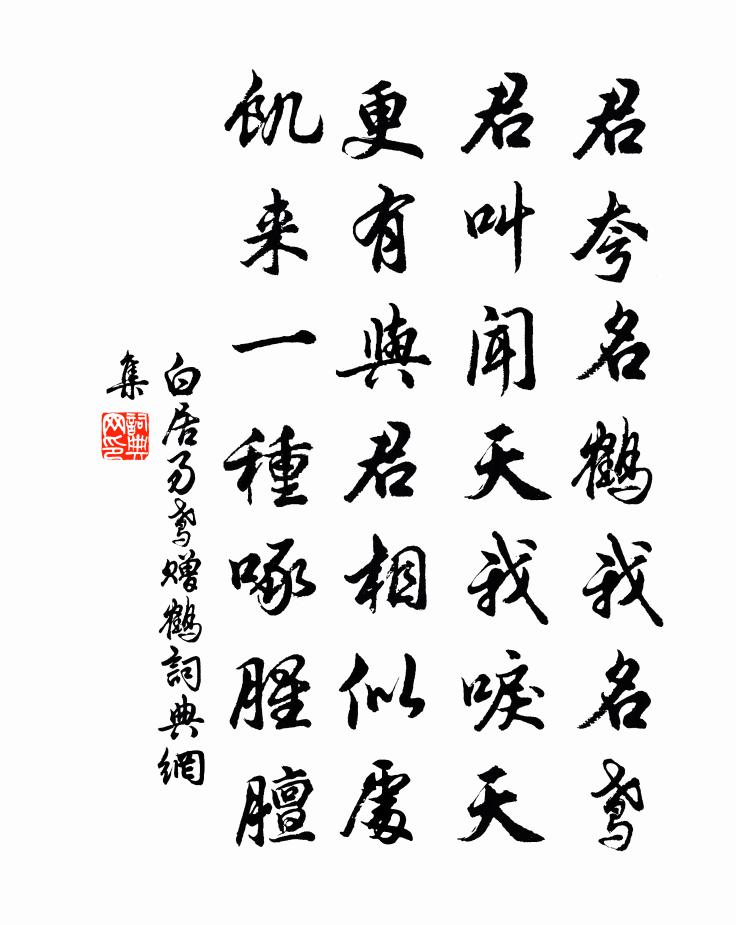 君夸名鹤我名鸢
君叫闻天我唳天
更有與君相似處
飢来一種啄腥膻
白居易鸢赠鹤詞典網
集
詞典网印